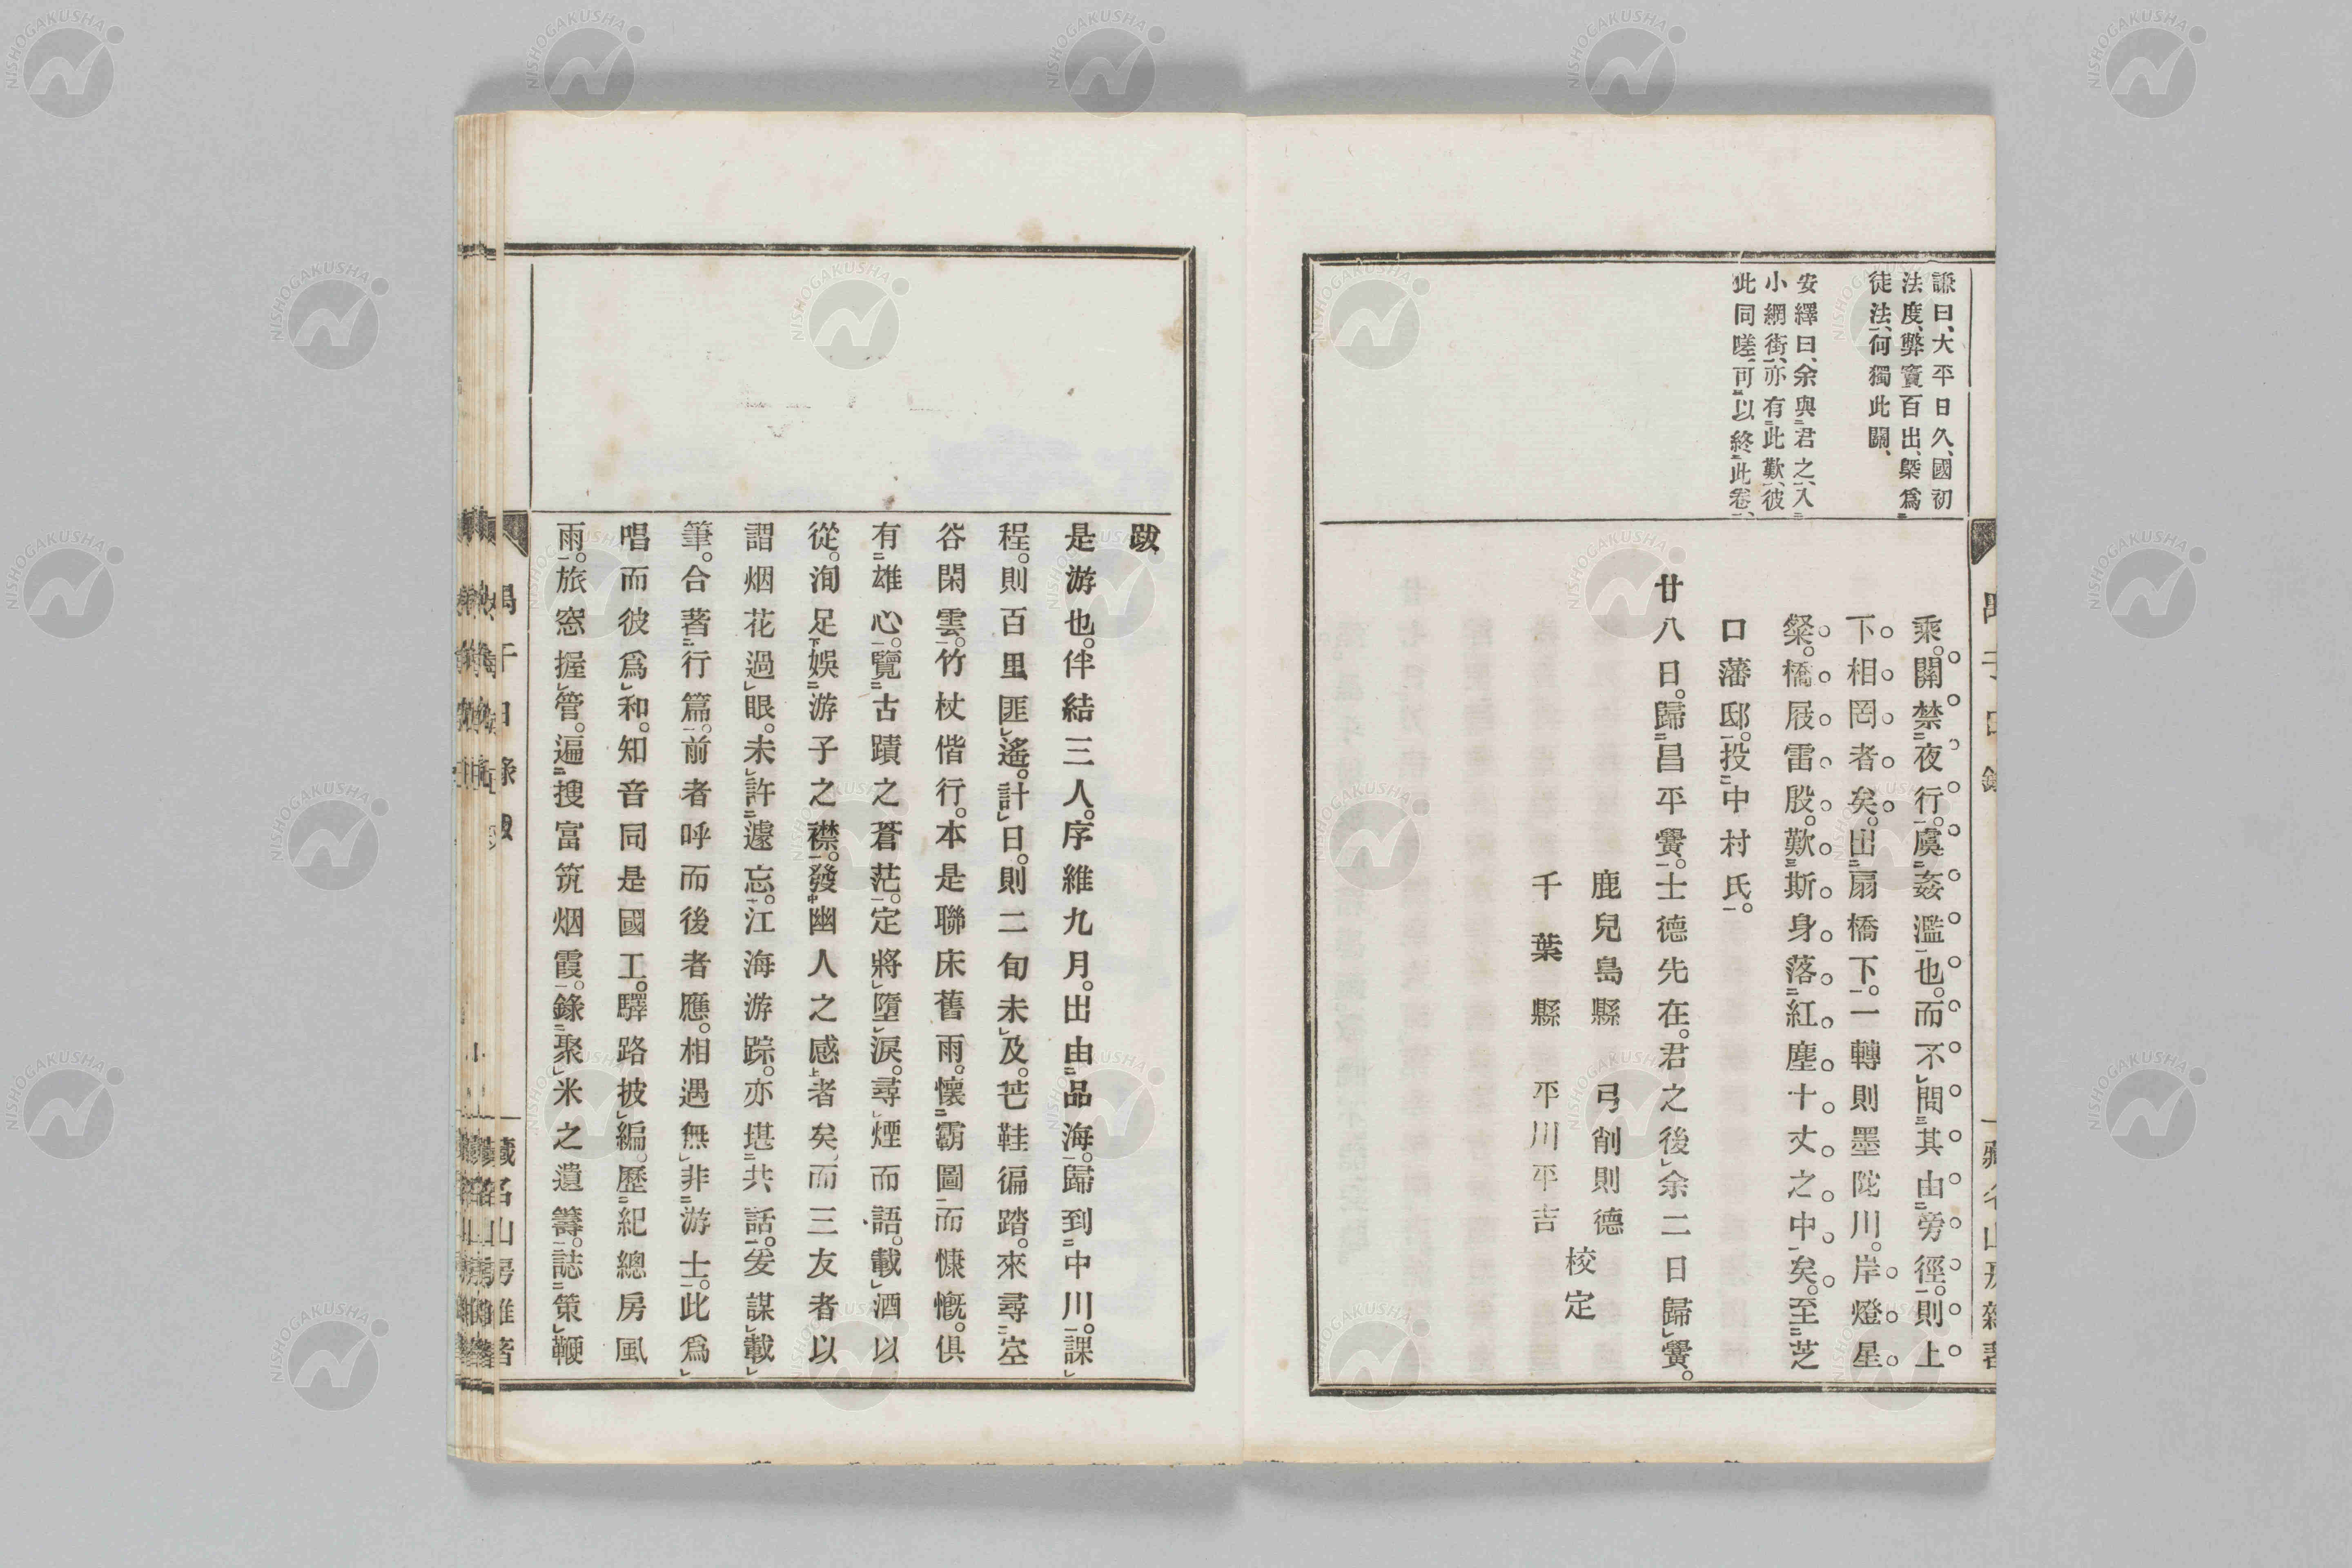 謙曰、大平日久、國初
法度、弊竇百出、槩爲
徒法、何獨此關、
安繹曰、余與君之、入
小網街、亦有此歎、彼
此同嗟、可以終此卷、
乘。關禁夜行。虞姦濫也。而不問其由旁徑。則上
下相罔者矣。出扇橋下。一轉則墨陀川。岸燈星
粲。橋屐雷殷。歎斯身落紅塵十丈之中矣。至芝
口藩邸。投中村氏。
廿八日。歸昌平黌。士德先在。君之後余二日歸黌。
鹿兒島縣 弓削則德
千葉縣 平川平吉
校定
跋
是游也。伴結三人。序維九月。出由品海。歸到中川。課
程。則百里匪遙。計日。則二旬未及。芒鞋徧踏。來尋空
谷閑雲。竹杖偕行。本是聯床舊雨。懷霸圖而慷慨。俱
有雄心。覽古蹟之蒼茫。定將墮淚。尋煙而語。載酒以
從。洵足娛游子之襟。發幽人之感者矣。而三友者以
謂烟花過眼。未許遽忘。江海游踪。亦堪共話。爰謀載
筆。合著行篇。前者呼而後者應。相遇無非游士。此爲
唱而彼爲和。知音同是國工。驛路披編。歷紀總房風
雨。旅窓握管。遍搜富筑烟霞。錄聚米之遺籌。誌策鞭
藏名山房雜著
NISHOGAKUSHA